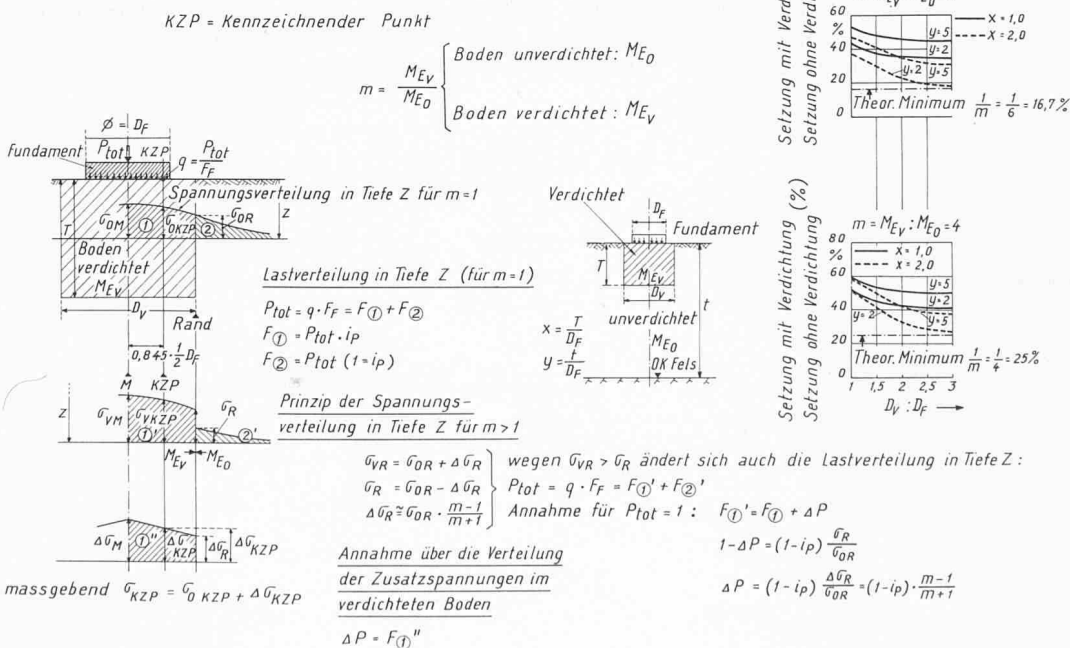 KZP = Kennzeichnender Punkt
m = M_Ev / M_Eo
Boden unverdichtet: M_Eo
Boden verdichtet: M_Ev
ø = D_F
P_tot KZP
Fundament
q = P_tot / F_F
Spannungsverteilung in Tiefe Z für m=1
σ_OM ① σ_OKZP ② σ_OR
T
z
Boden
verdichtet
M_Ev
D_V
Rand
0,845·½ D_F
M KZP
Lastverteilung in Tiefe Z (für m=1)
P_tot = q · F_F = F_① + F_②
F_① = P_tot · i_P
F_② = P_tot (1 = i_P)
z σ_VM σ_VKZP ①' σ_R ②'
M_Ev M_Eo
Prinzip der Spannungs-
verteilung in Tiefe Z für m>1
σ_VR = σ_OR + Δσ_R
σ_R = σ_OR - Δσ_R
Δσ_R ≅ σ_OR · (m-1)/(m+1)
wegen σ_VR > σ_R ändert sich auch die Lastverteilung in Tiefe Z :
P_tot = q · F_F = F_①' + F_②'
Annahme für P_tot = 1 : F_①' = F_① + ΔP
1-ΔP = (1-i_P) σ_R/σ_OR
ΔP = (1-i_P) Δσ_R/σ_OR = (1-i_P) · (m-1)/(m+1)
Δσ_M ①" Δσ_KZP Δσ_R Δσ_KZP
massgebend σ_KZP = σ_O KZP + Δσ_KZP
Annahme über die Verteilung
der Zusatzspannungen im
verdichteten Boden
ΔP = F_①"
Verdichtet
D_F
Fundament
T
M_Ev
D_V
t
unverdichtet
M_Eo
OK Fels
x = T/D_F
y = t/D_F
Setzung mit Verd
Setzung ohne Verd
60
%
40
20
0
x = 1,0
x = 2,0
y=5
y=2
y=2
y=5
Theor. Minimum 1/m = 1/6 = 16,7%
Setzung mit Verdichtung (%)
Setzung ohne Verdichtung
m = M_Ev : M_Eo = 4
80
%
60
40
20
0
x = 1,0
x = 2,0
y=5
y=2
y=2
y=5
Theor. Minimum 1/m = 1/4 = 25%
1 1,5 2 2,5 3
D_V : D_F